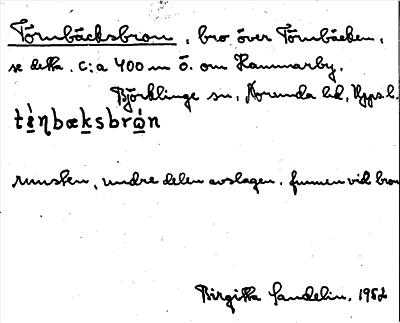 Törnbäcksbron, bro över Törnbäcken,
se detta. C:a 400 m ö. om Hammarby,
Björklinge sn, Norunda hd, Upps. l.
runsten, undre delen avslagen, funnen vid bron
Birgitta Sandelin, 1952